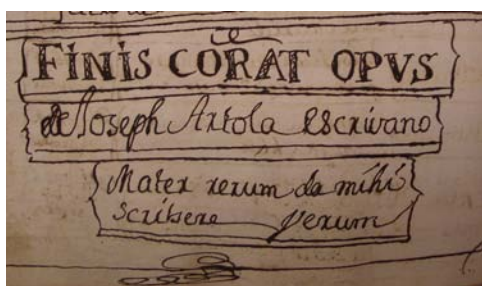 FINIS CÕRAT OPVS
de Joseph Artola escrivano
Mater rerum da mihi
scribere verum